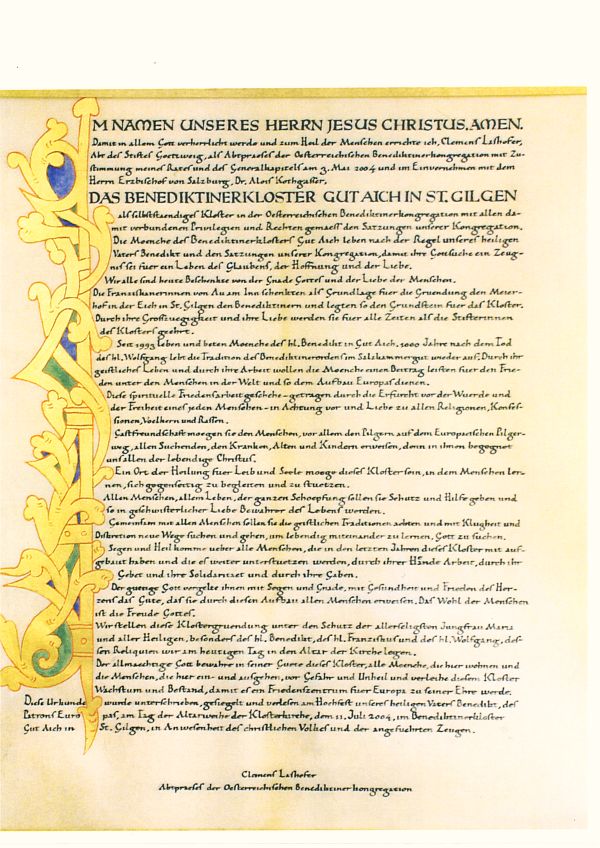 IM NAMEN UNSERES HERRN JESUS CHRISTUS. AMEN.
Damit in allem Gott verherrlicht werde und zum Heil der Menschen errichte ich, Clemens Lashofer,
Abt des Stiftes Goettweig, als Abtpraeses der Oesterreichischen Benediktinerkongregation mit Zu-
stimmung meines Rates und des Generalkapitels am 3. Mai 2004 und im Einvernehmen mit dem
Herrn Erzbischof von Salzburg, Dr. Alois Kothgasser,
DAS BENEDIKTINERKLOSTER GUT AICH IN ST. GILGEN
als selbststaendiges Kloster in der Oesterreichischen Benediktinerkongregation mit allen da-
mit verbundenen Privilegien und Rechten gemaess den Satzungen unserer Kongregation.
Die Moenche des Benediktinerklosters Gut Aich leben nach der Regel unseres heiligen
Vaters Benedikt und den Satzungen unserer Kongregation, damit ihre Gottsuche ein Zeug-
nis sei fuer ein Leben des Glaubens, der Hoffnung und der Liebe.
Wir alle sind heute Beschenkte von der Gnade Gottes und der Liebe der Menschen.
Die Franziskanerinnen von Au am Inn schenkten als Grundlage fuer die Gruendung den Meier-
hof in der Eich in St. Gilgen den Benediktinern und legten so den Grundstein fuer das Kloster.
Durch ihre Groszuegigkeit und ihre Liebe werden sie fuer alle Zeiten als die Stifterinnen
des Klosters geehrt.
Seit 1993 leben und beten Moenche des hl. Benedikt in Gut Aich. 1000 Jahre nach dem Tod
des hl. Wolfgang lebt die Tradition des Benediktinerordens im Salzkammergut wieder auf. Durch ihr
geistliches Leben und durch ihre Arbeit wollen die Moenche einen Beitrag leisten fuer den Frie-
den unter den Menschen in der Welt und so dem Aufbau Europas dienen.
Diese spirituelle Friedensarbeit geschehe - getragen durch die Erfurcht vor der Wuerde und
der Freiheit eines jeden Menschen - in Achtung vor und Liebe zu allen Religionen, Konfes-
sionen, Voelkern und Rassen.
Gastfreundschaft moegen sie den Menschen, vor allem den Pilgern auf dem Europaeischen Pilger-
weg, allen Suchenden, den Kranken, Alten und Kindern erweisen, denn in ihnen begegnet
uns allen der lebendige Christus.
Ein Ort der Heilung fuer Leib und Seele moege dieses Kloster sein, in dem Menschen ler-
nen, sich gegenseitig zu begleiten und zu stuetzen.
Allen Menschen, allem Leben, der ganzen Schoepfung sollen sie Schutz und Hilfe geben und
so in geschwisterlicher Liebe Bewahrer des Lebens werden.
Gemeinsam mit allen Menschen sollen sie die geistlichen Traditionen achten und mit Klugheit und
Discretion neue Wege suchen und gehen, um lebendig miteinander zu lernen, Gott zu suchen.
Segen und Heil komme ueber alle Menschen, die in den letzten Jahren dieses Kloster mit auf-
gebaut haben und die es weiter unterstuetzen werden, durch ihrer Hände Arbeit, durch ihr
Gebet und ihre Solidaritaet und durch ihre Gaben.
Der guetige Gott vergelte ihnen mit Segen und Gnade, mit Gesundheit und Frieden des Her-
zens das Gute, das sie durch diesen Aufbau allen Menschen erweisen. Das Wohl der Menschen
ist die Freude Gottes.
Wir stellen diese Klostergruendung unter den Schutz der allerseligsten Jungfrau Maria
und aller Heiligen, besonders des hl. Benedikt, des hl. Franziskus und des hl. Wolfgang, des-
sen Reliquien wir am heutigen Tag in den Altar der Kirche legen.
Der allmaechtige Gott bewahre in seiner Guete dieses Kloster, alle Moenche, die hier wohnen und
die Menschen, die hier ein- und ausgehen, vor Gefahr und Unheil und verleihe diesem Kloster
Wachstum und Bestand, damit es ein Friedenszentrum fuer Europa zu seiner Ehre werde.
Diese Urkunde wurde unterschrieben, gesiegelt und verlesen am Hochfest unseres heiligen Vaters Benedikt, des
Patrons Euro pas, am Tag der Altarweihe der Klosterkirche, dem 11. Juli 2004, im Benediktinerkloster
Gut Aich in St. Gilgen, in Anwesenheit des christlichen Volkes und der angefuehrten Zeugen.
Clemens Lashofer
Abtpraeses der Oesterreichischen Benediktinerkongregation